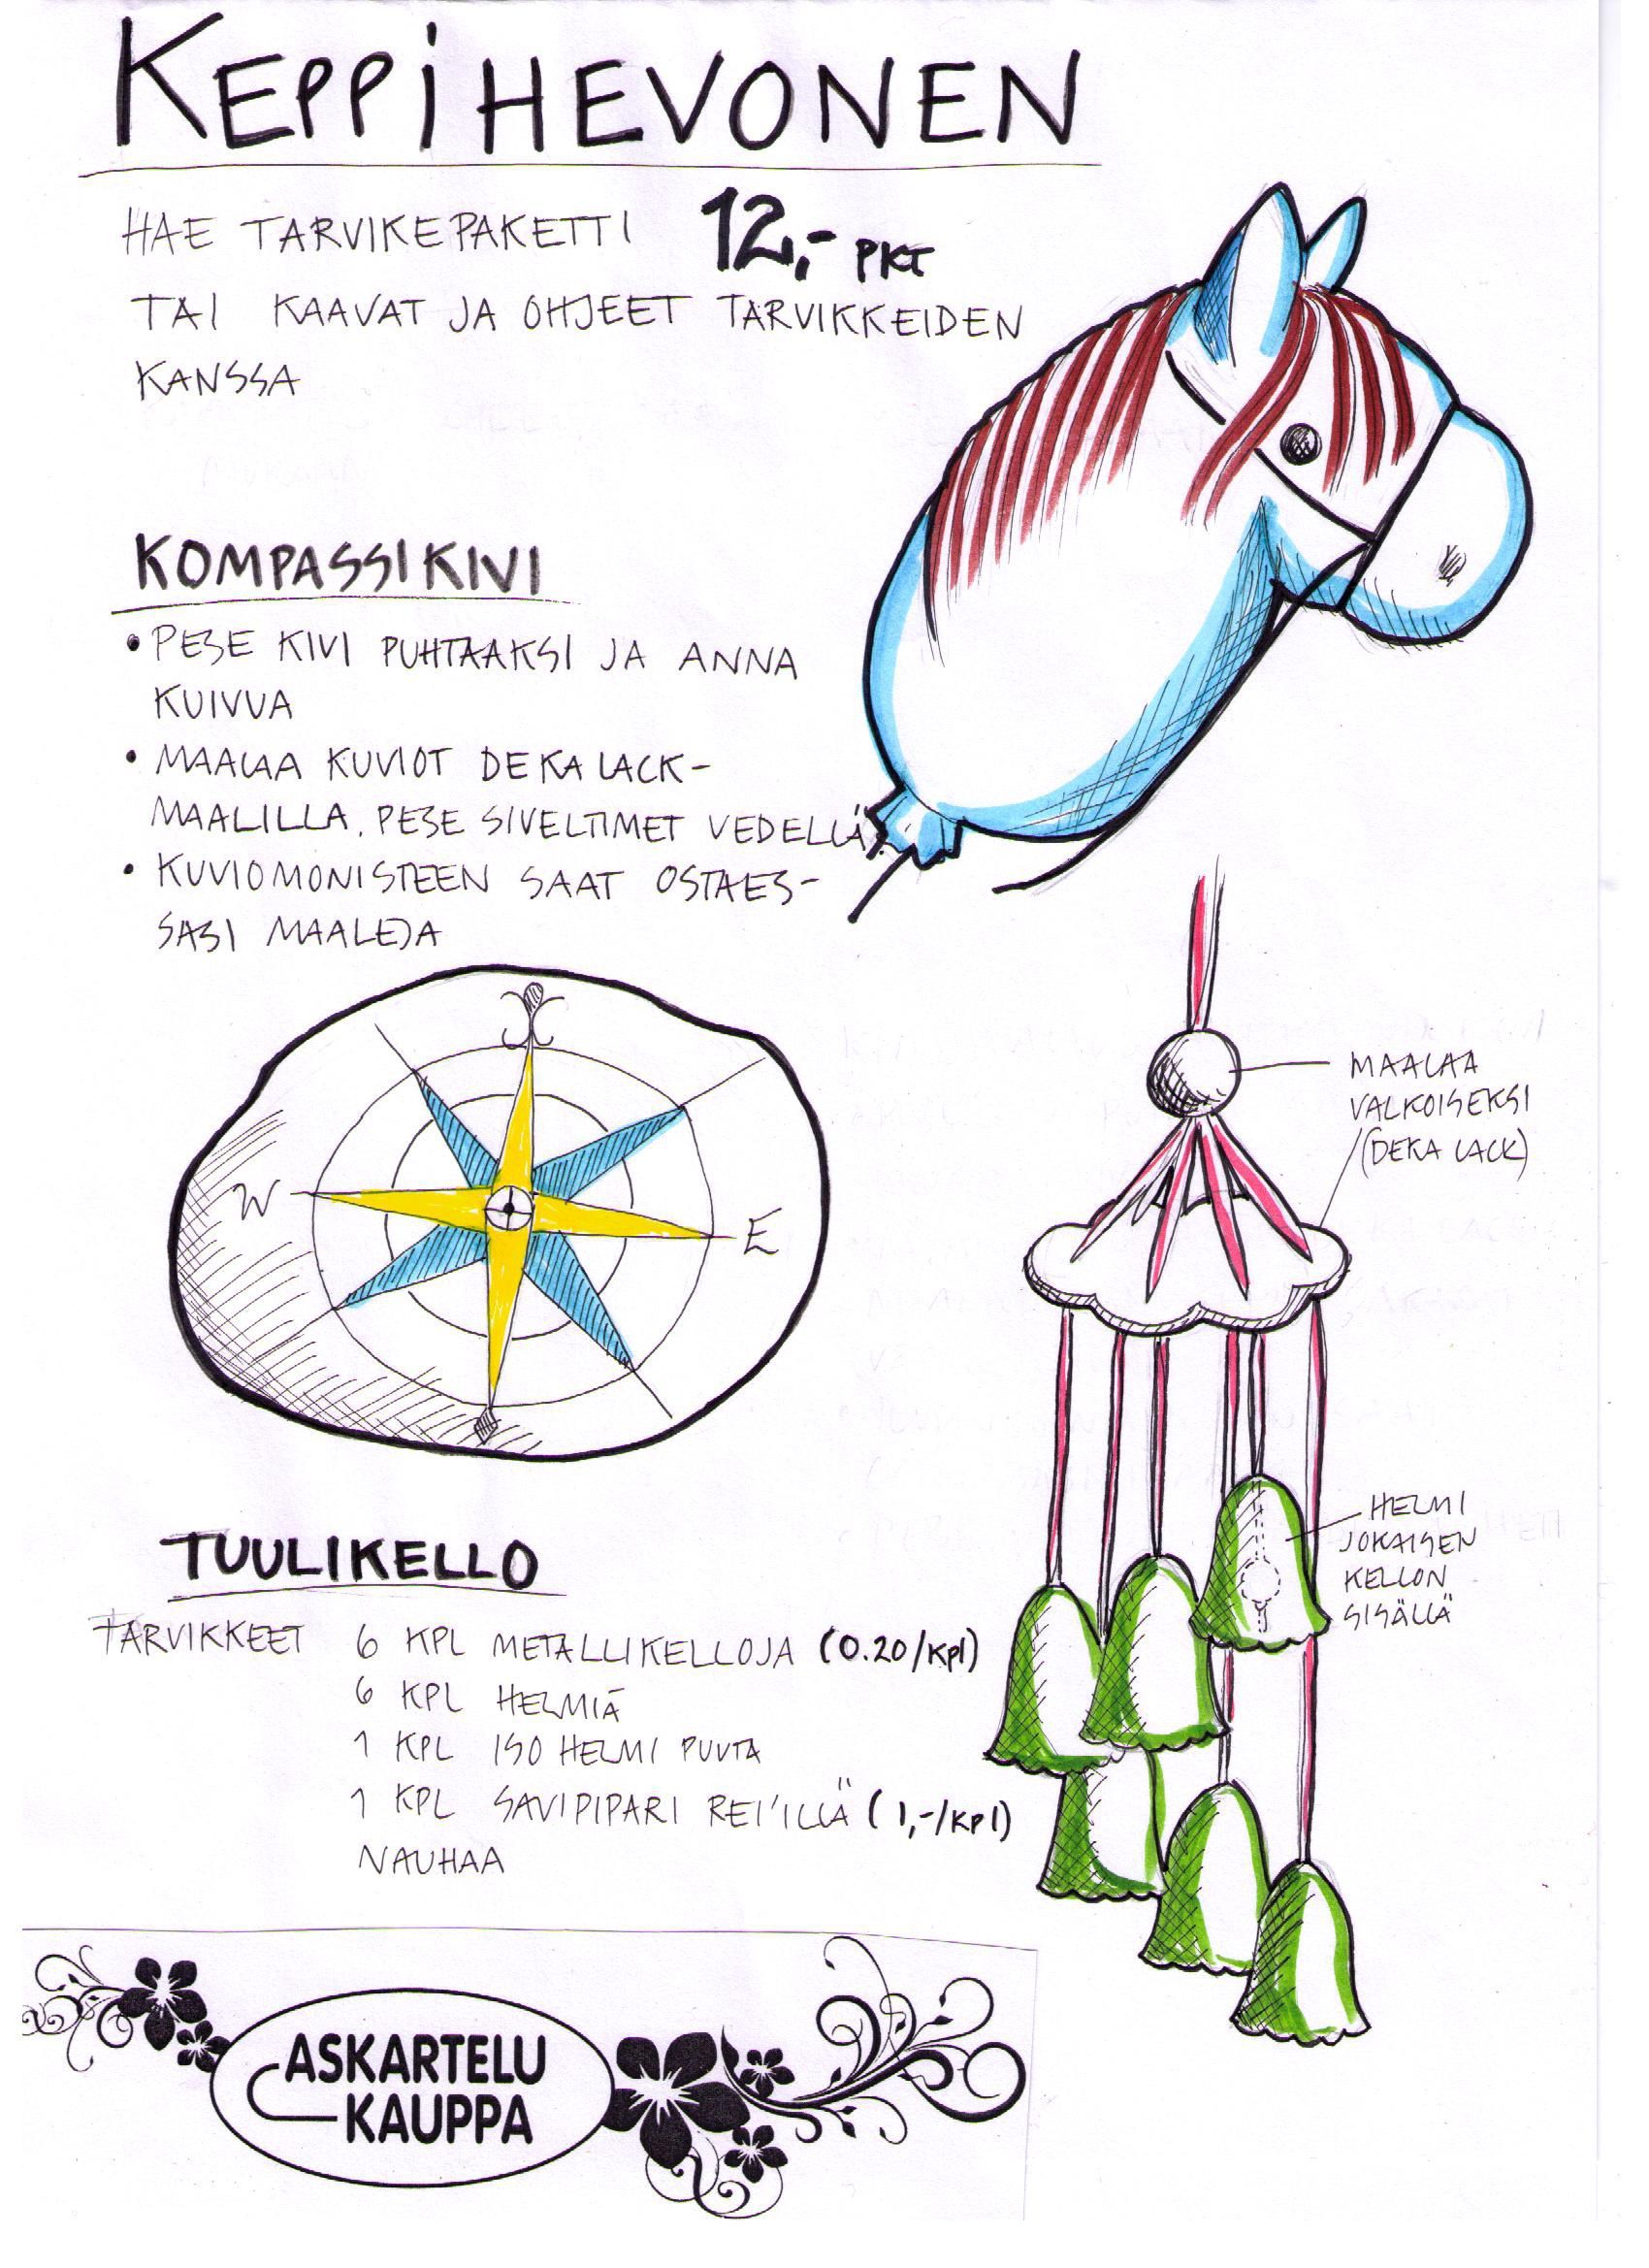 KEPPIHEVONEN
HAE TARVIKEPAKETTI 12,- PKT
TAI KAAVAT JA OHJEET TARVIKKEIDEN
KANSSA
KOMPASSIKIVI
• PESE KIVI PUHTAAKSI JA ANNA
KUIVUA
• MAALAA KUVIOT DEKA LACK-
MAALILLA. PESE SIVELTIMET VEDELLÄ.
• KUVIOMONISTEEN SAAT OSTAES-
SASI MAALEJA
W
E
MAALAA
VALKOISEKSI
(DEKA LACK)
HELMI
JOKAISEN
KELLON
SISÄLLÄ
TUULIKELLO
TARVIKKEET 6 KPL METALLIKELLOJA (0.20/KPl)
6 KPL HELMIÄ
1 KPL ISO HELMI PUUTA
1 KPL SAVIPIPARI REI'ILLÄ (1,-/KPl)
NAUHAA
ASKARTELU
KAUPPA